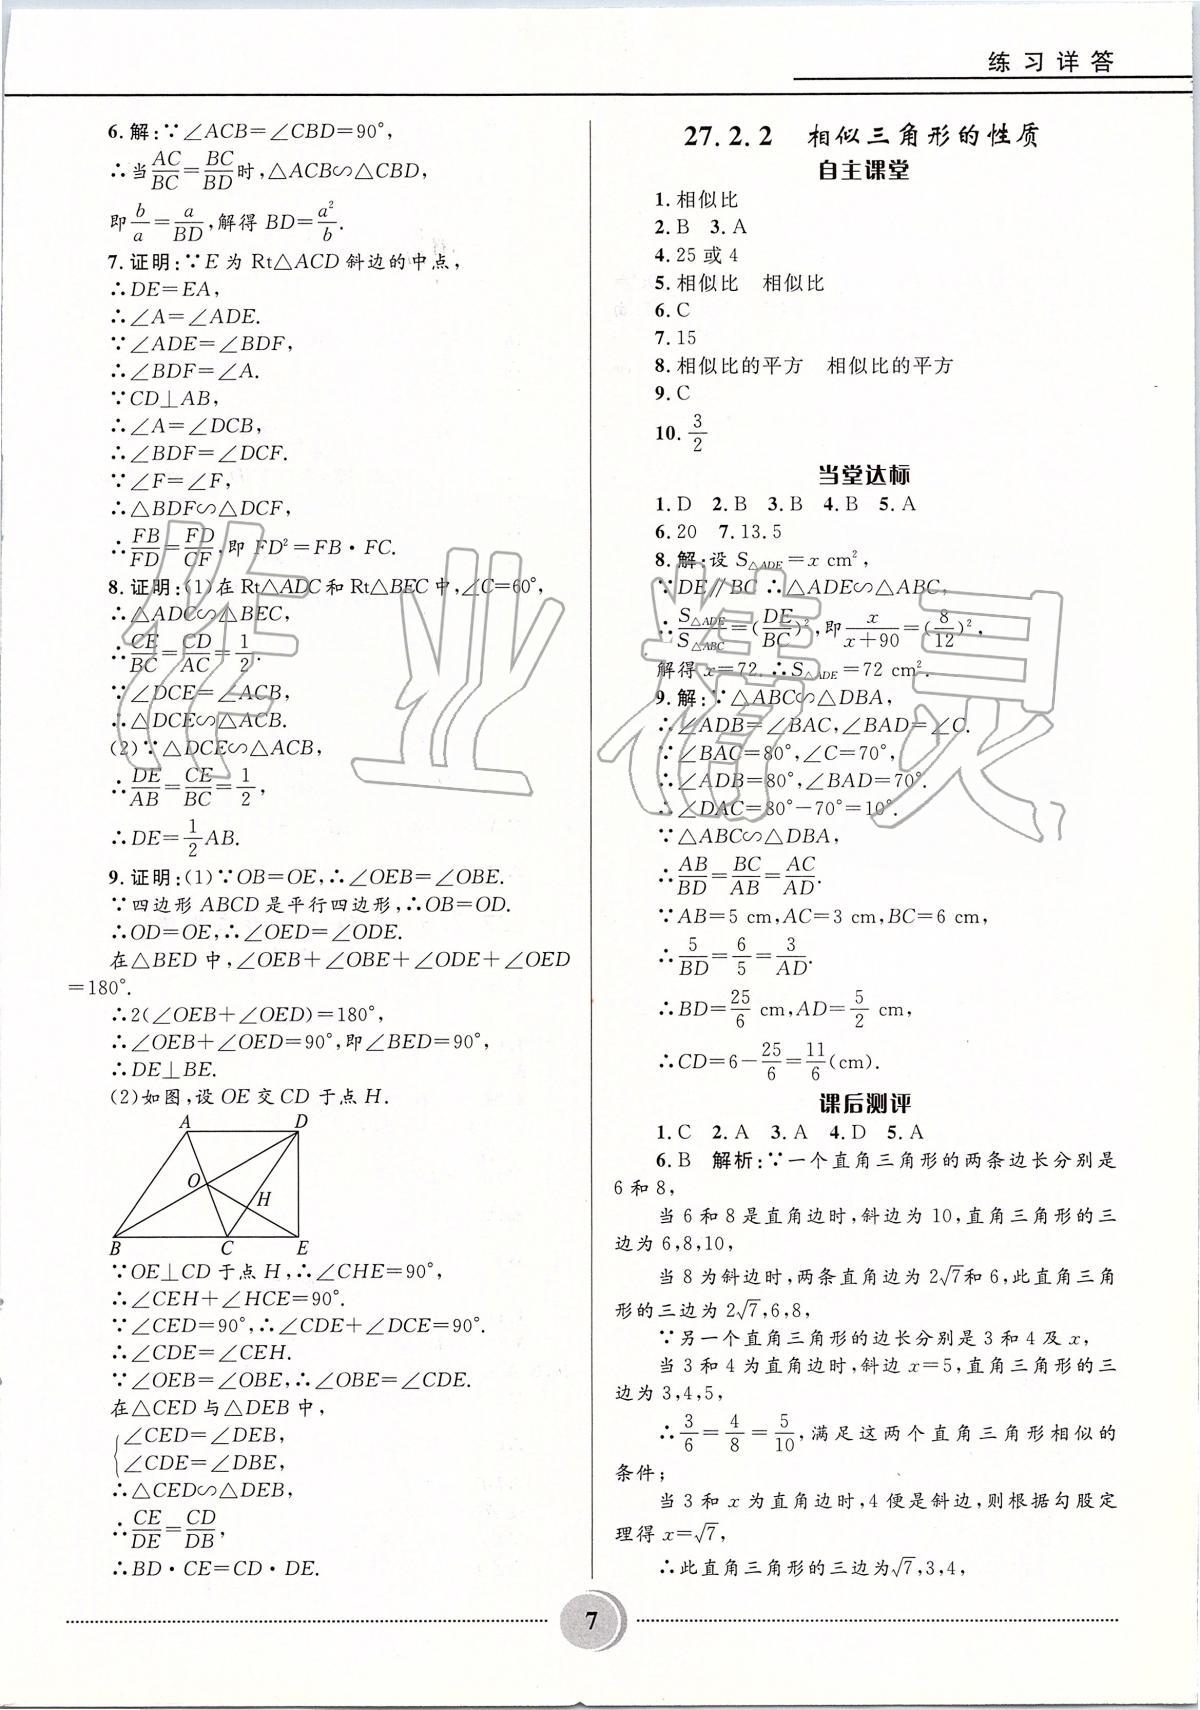 练习详答
6.解:∵∠ACB=∠CBD=90°,
∴当AC/BC=BC/BD时,△ACB∽△CBD,
即b/a=a/BD,解得BD=a²/b.
7.证明:∵E为Rt△ACD斜边的中点,
∴DE=EA,
∴∠A=∠ADE.
∵∠ADE=∠BDF,
∴∠BDF=∠A.
∵CD⊥AB,
∴∠A=∠DCB,
∴∠BDF=∠DCF.
∵∠F=∠F,
∴△BDF∽△DCF,
∴FB/FD=FD/CF,即FD²=FB·FC.
8.证明:(1)在Rt△ADC和Rt△BEC中,∠C=60°,
∴△ADC∽△BEC,
∴CE/BC=CD/AC=1/2.
∵∠DCE=∠ACB,
∴△DCE∽△ACB.
(2)∵△DCE∽△ACB,
∴DE/AB=CE/BC=1/2,
∴DE=1/2AB.
9.证明:(1)∵OB=OE,∴∠OEB=∠OBE.
∵四边形ABCD是平行四边形,∴OB=OD.
∴OD=OE,∴∠OED=∠ODE.
在△BED中,∠OEB+∠OBE+∠ODE+∠OED
=180°.
∴2(∠OEB+∠OED)=180°,
∴∠OEB+∠OED=90°,即∠BED=90°,
∴DE⊥BE.
(2)如图,设OE交CD于点H.
A D
O
H
B C E
∵OE⊥CD于点H,∴∠CHE=90°,
∴∠CEH+∠HCE=90°.
∵∠CED=90°,∴∠CDE+∠DCE=90°.
∴∠CDE=∠CEH.
∵∠OEB=∠OBE,∴∠OBE=∠CDE.
在△CED与△DEB中,
∠CED=∠DEB,
∠CDE=∠DBE,
∴△CED∽△DEB,
∴CE/DE=CD/DB,
∴BD·CE=CD·DE.
27.2.2 相似三角形的性质
自主课堂
1.相似比
2.B 3.A
4.25或4
5.相似比 相似比
6.C
7.15
8.相似比的平方 相似比的平方
9.C
10.3/2
当堂达标
1.D 2.B 3.B 4.B 5.A
6.20 7.13.5
8.解:设S△ADE=x cm²,
∵DE∥BC ∴△ADE∽△ABC,
∴S△ADE/S△ABC=(DE/BC)²,即x/(x+90)=(8/12)²,
解得x=72.∴S△ADE=72 cm².
9.解:∵△ABC∽△DBA,
∴∠ADB=∠BAC,∠BAD=∠C.
∵∠BAC=80°,∠C=70°,
∴∠ADB=80°,∠BAD=70°.
∴∠DAC=80°-70°=10°.
∵△ABC∽△DBA,
∴AB/BD=BC/AB=AC/AD.
∵AB=5 cm,AC=3 cm,BC=6 cm,
∴5/BD=6/5=3/AD.
∴BD=25/6 cm,AD=5/2 cm,
∴CD=6-25/6=11/6(cm).
课后测评
1.C 2.A 3.A 4.D 5.A
6.B 解析:∵一个直角三角形的两条边长分别是
6和8,
当6和8是直角边时,斜边为10,直角三角形的三
边为6,8,10,
当8为斜边时,两条直角边为2√7和6,此直角三角
形的三边为2√7,6,8,
∵另一个直角三角形的边长分别是3和4及x,
当3和4为直角边时,斜边x=5,直角三角形的三
边为3,4,5,
∴3/6=4/8=5/10,满足这两个直角三角形相似的
条件;
当3和x为直角边时,4便是斜边,则根据勾股定
理得x=√7,
∴此直角三角形的三边为√7,3,4,
作业精灵
7